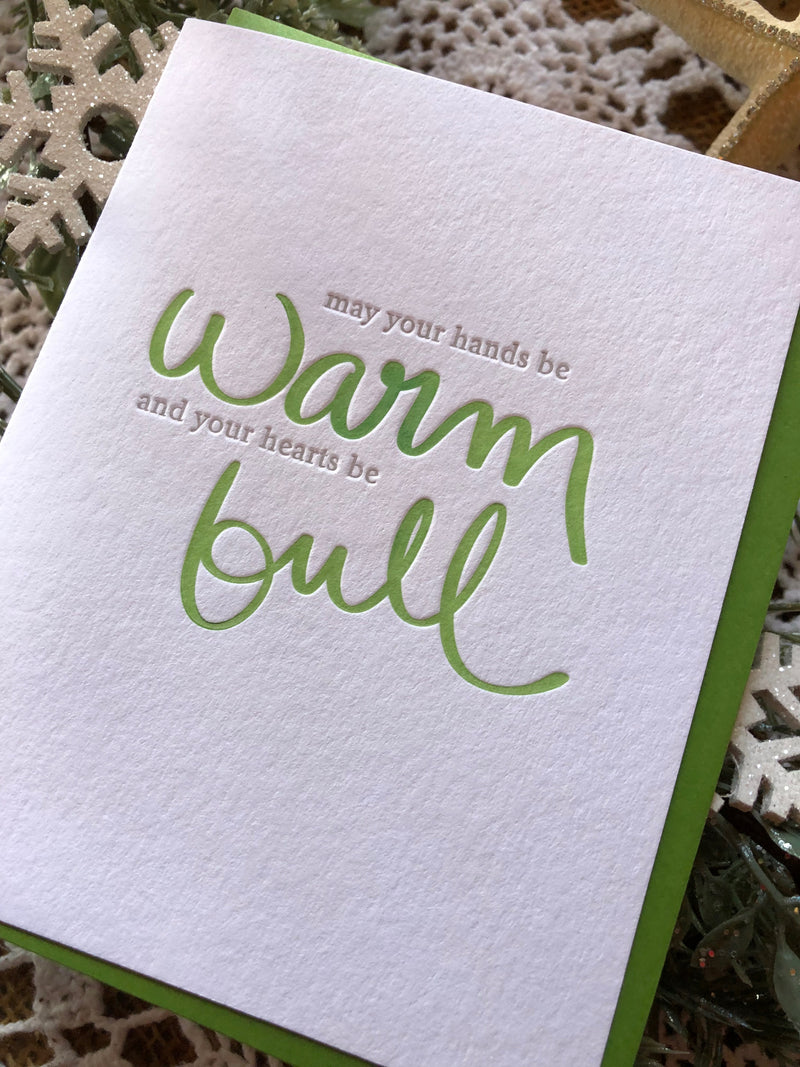 may your hands be
warm
and your hearts be
bull